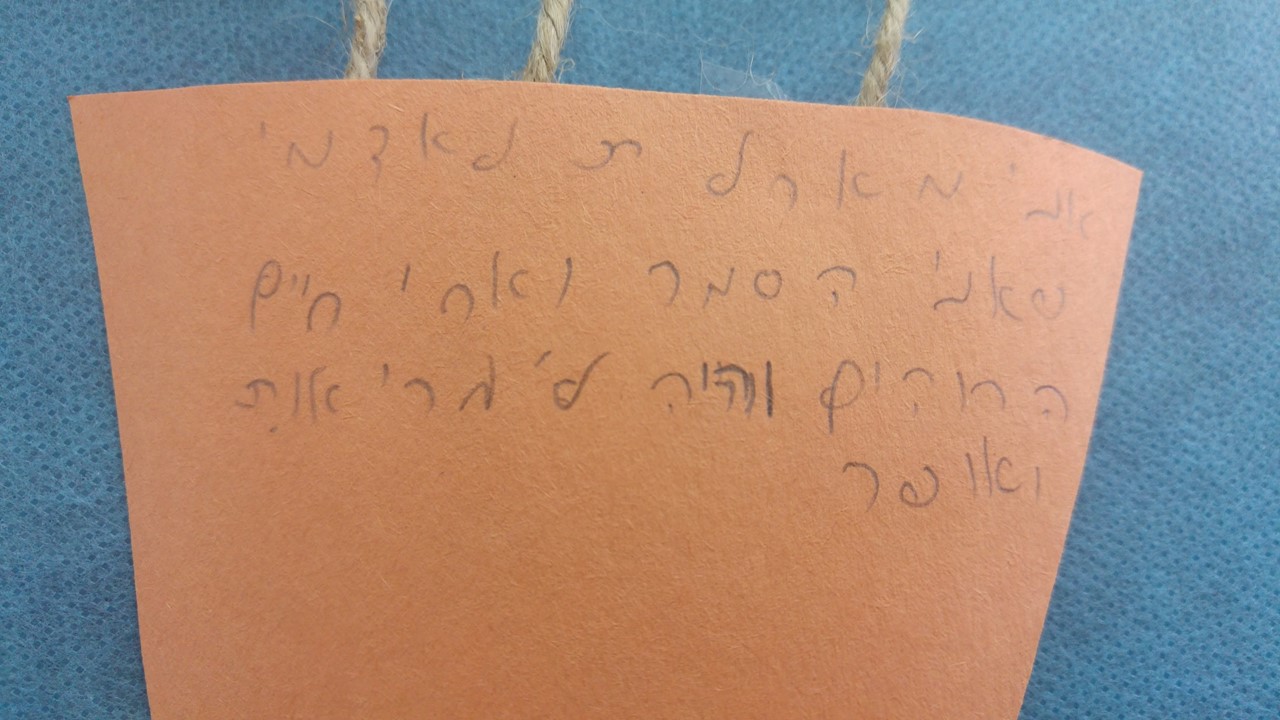 אני מארל ת לאדמי
שאני הסמר ואחי חיים
הרוהים והיה לי גריאות
ואושר